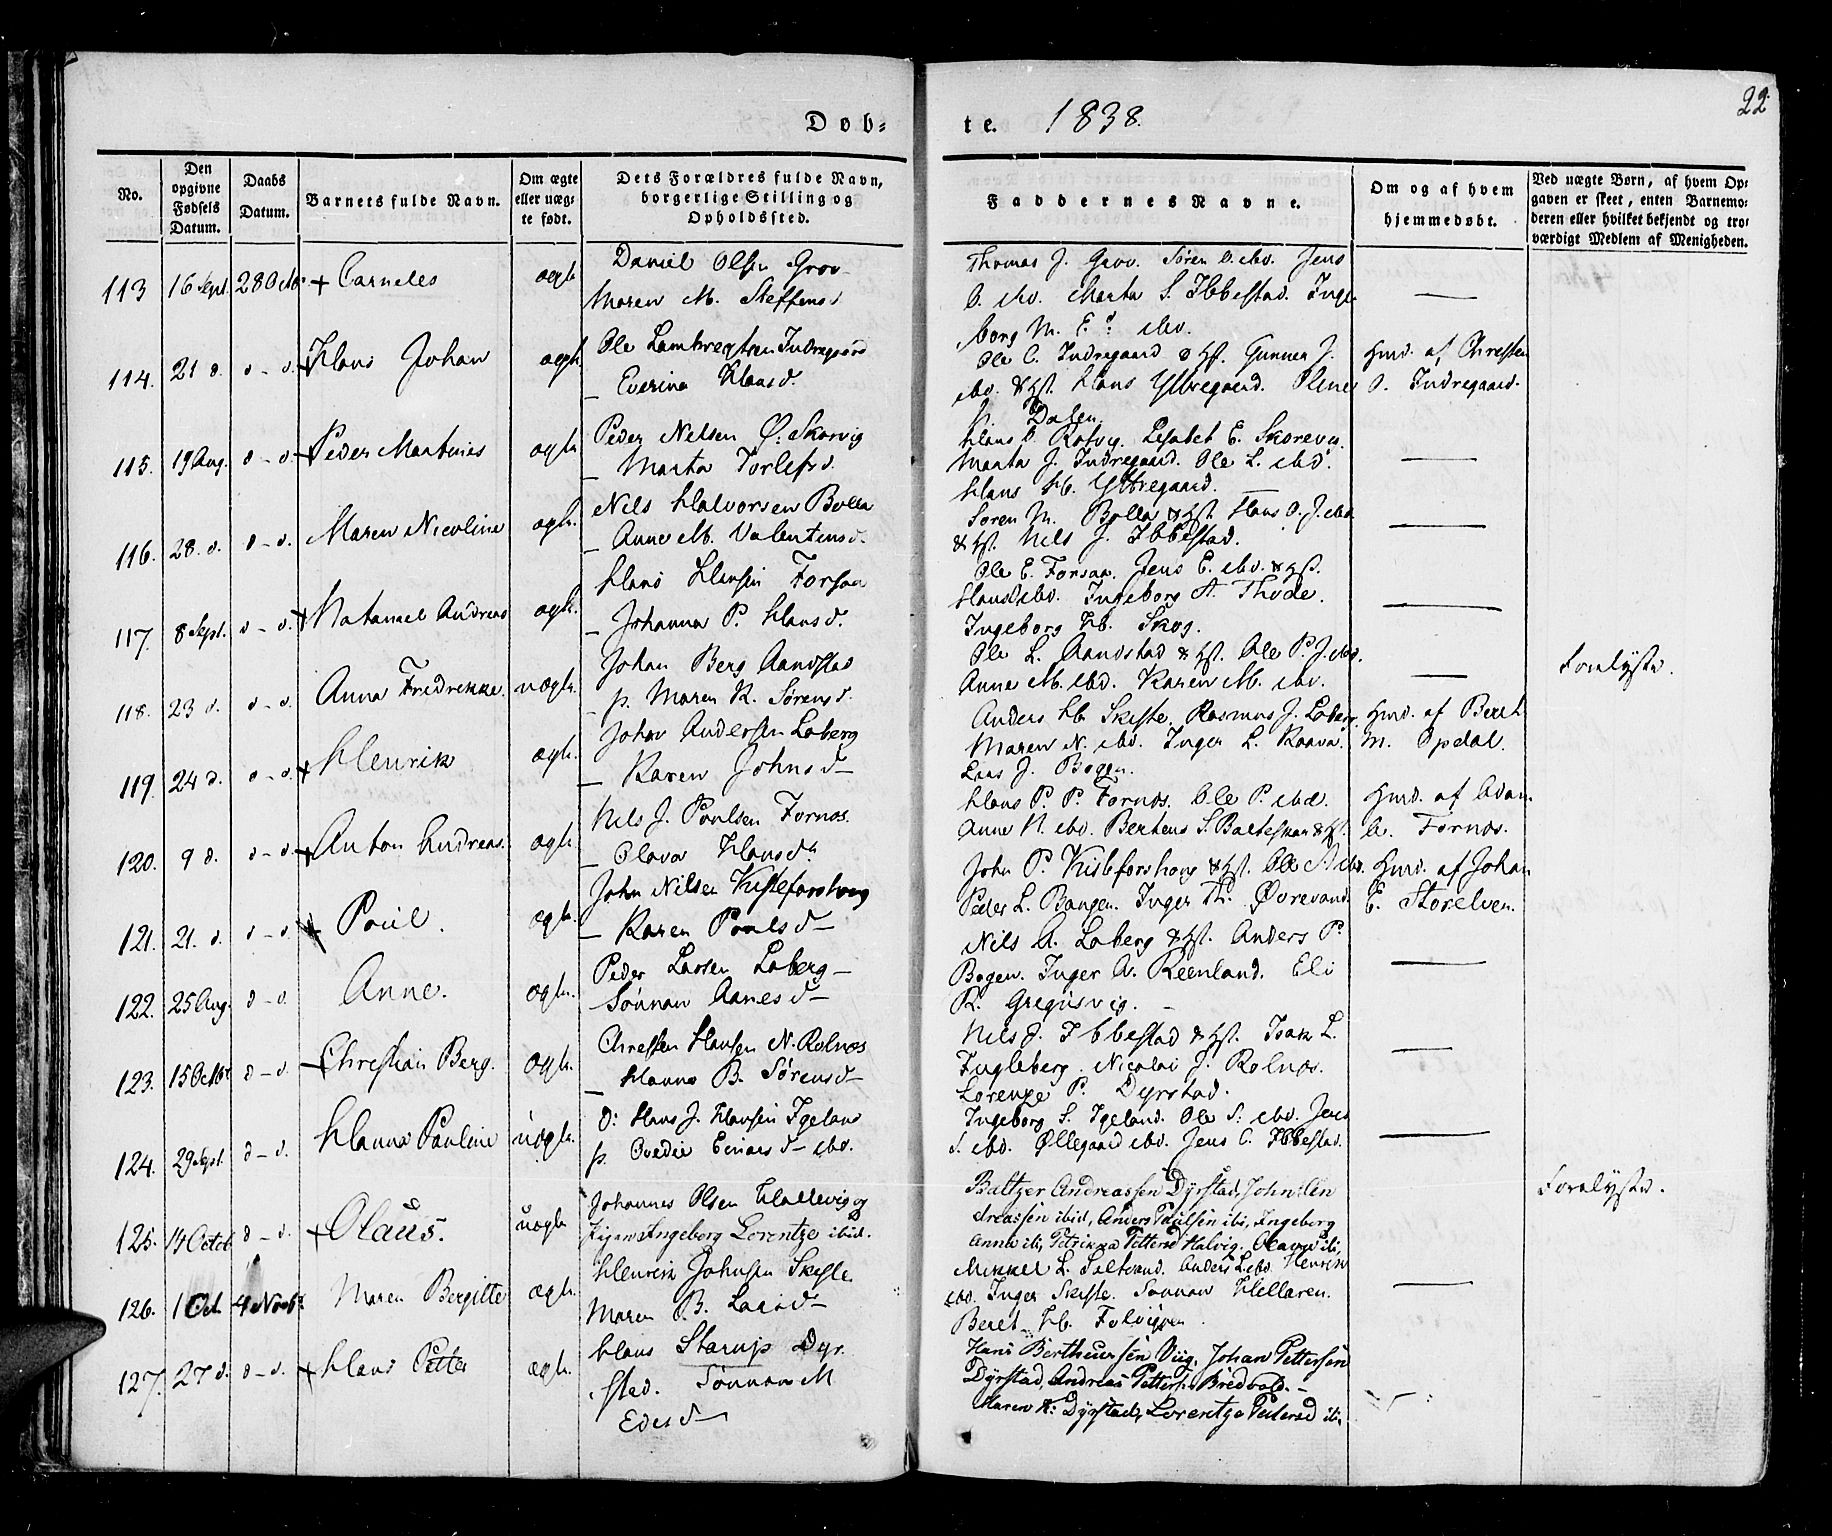 Døb=
te. 1838.
22.
No.
Den opgivne Fødsels Datum.
Daabs Datum.
Barnets fulde Navn.
Om ægte eller uæg=te født.
Dets Forældres fulde Navn, borgerlige Stilling og Opholdssted.
Faddernes Navne.
Om og af hvem hjemmedøbt.
Ved uægte Børn, af hvem Op=gaven er skeet, enten Barnemo=deren eller hvilket bekjendt og tro=værdigt Medlem af Menigheden.
113 16 Sept. 28 Octb. + Carneles ægte
Daniel Olsen Grov
Maren M. Steffensd.
Thomas J. Grov. Søren O. ibd. Jens
O. ibd. Marta S. Ibbestad. Inge
borg M. E. ibd.
114. 21 d. d - d. + Hans Johan ægte
Ole Lambregtsen Indregaard
Everina Hansd.
Ole C. Indregaard & Hst. Gunner J.
ibd. & Hst. Hans Yttregaard. Olene
P. Dalen.
Hmd. af Christen
O. Indregaard.
115. 19 Aug. d - d. + Peder Martinus ægte
Peder Nelsen Ø: Skorvig
Marta Torlefsd.
Hans O. Rotvig. Lisabet E. Skorevig.
Marta J. Indregaard. Ole L. ibd.
Hans Hb. Yttregaard.
116. 28. d. d - d. Maren Nicoline ægte.
Nils Halvorsen Bolla
Anne M. Valentinsd.
Søren M. Bolla & Hst. Hans O. J. ibd.
& Hst. Nils J. Ibbestad.
117. 8 Sept. d - d. + Natanael Andreas ægte.
Hans Hansen Forsaa
Johanna P. Hansd.
Ole E. Forsaa. Jens E. ibd. & Hst.
Hans ibd. Ingeborg A. Thode.
Ingeborg Hb. Skog.
118. 23 d. d - d. Anna Fredrikke. uægte.
Johan Berg Aandstad
p. Maren K. Sørensd.
Ole L. Aandstad & Hst. Ole P. J. ibd.
Anne M. ibd. Karen M. ibd.
Forelyste.
119. 24 d. d - d. + Henrik ægte.
Johan Andersen Loberg
Karen Johnsd
Anders Hb. Skefte. Rasmus J. Loberg.
Maren N. ibd. Inger L. Raava.
Lars J. Bogen.
Hmd. af Beret
M. Opdal.
120. 9 d. d - d. + Anton Andreas. ægte
Nils J. Poulsen Fornes.
Olava Hansd.
Hans P. P. Fornes. Ole P. ibd.
Anne N. ibd. Bertens S. Balteskar & Hst.
Hmd. af Adam
A. Fornes.
121. 21. d. d - d. Poul. ægte.
John Nilsen Kisleforshoug
Karen Poulsd
John P. Kisleforshoug & Hst. Ole A. ibd.
Peder L. Bangen. Inger Th. Øvrevand.
Hmd. af Johan
E. Storelven.
122. 25 Aug. d - d. Anne. ægte.
Peder Larsen Loberg
Sønnau Aanesd
Nils A. Loberg & Hst. Anders P.
Bogen. Inger A. Reenland. Eli
R. Gregusvig.
123. 15 Octbr d - d. + Christian Berg. ægte.
Christen Hansen N. Rolnæs
Hanna B. Sørensd
Nils J. Ibbestad & Hst. Isak L.
Fugleberg. Nicolai J. Rolnæs.
Lorenze P. Dyrstad.
124. 29 Sept. d - d. Hanna Pauline uægte.
O: Hans J. Hansen Igeland
p. Ovedie Einarsd ibd.
Ingeborg S. Igeland. Ole S. ibd. Jens
S. ibd. Øllegaard ibd. Jens C. Ibbestad.
125. 14 Octob d - d. + Olaus. uægte
Johannes Olsen Hallevig og
Pigen Ingeborg Lorentze ibid.
Baltzer Andreassen Dyrstad, John An
dreassen ibid, Anders Paulsen ibi, Ingeborg
Anna ibi, Petrikka Pettersd Halvig. Olava ibi,
Forelyste.
126. 1 Oct. 4 Novbr. Maren Bergitte ægte.
Henrik Johnsen Skefte
Maren B. Larsd
Mikkel L. Saltvand. Anders L. ibd. Henrik
ibd. Inger Skefte. Sønnau Hellaren.
Beret Hb. Folvigen.
127. 27 d. d - d. + Hans Petter ægte.
Hans Starup Dyr
sted. Sønnau M
Edisd
Hans Bertheussen Viig, Johan Pettersen
Dyrstad, Andreas Petters. Bredvold.
Maren K: Dyrstad, Lorentze Pedersd ibi,